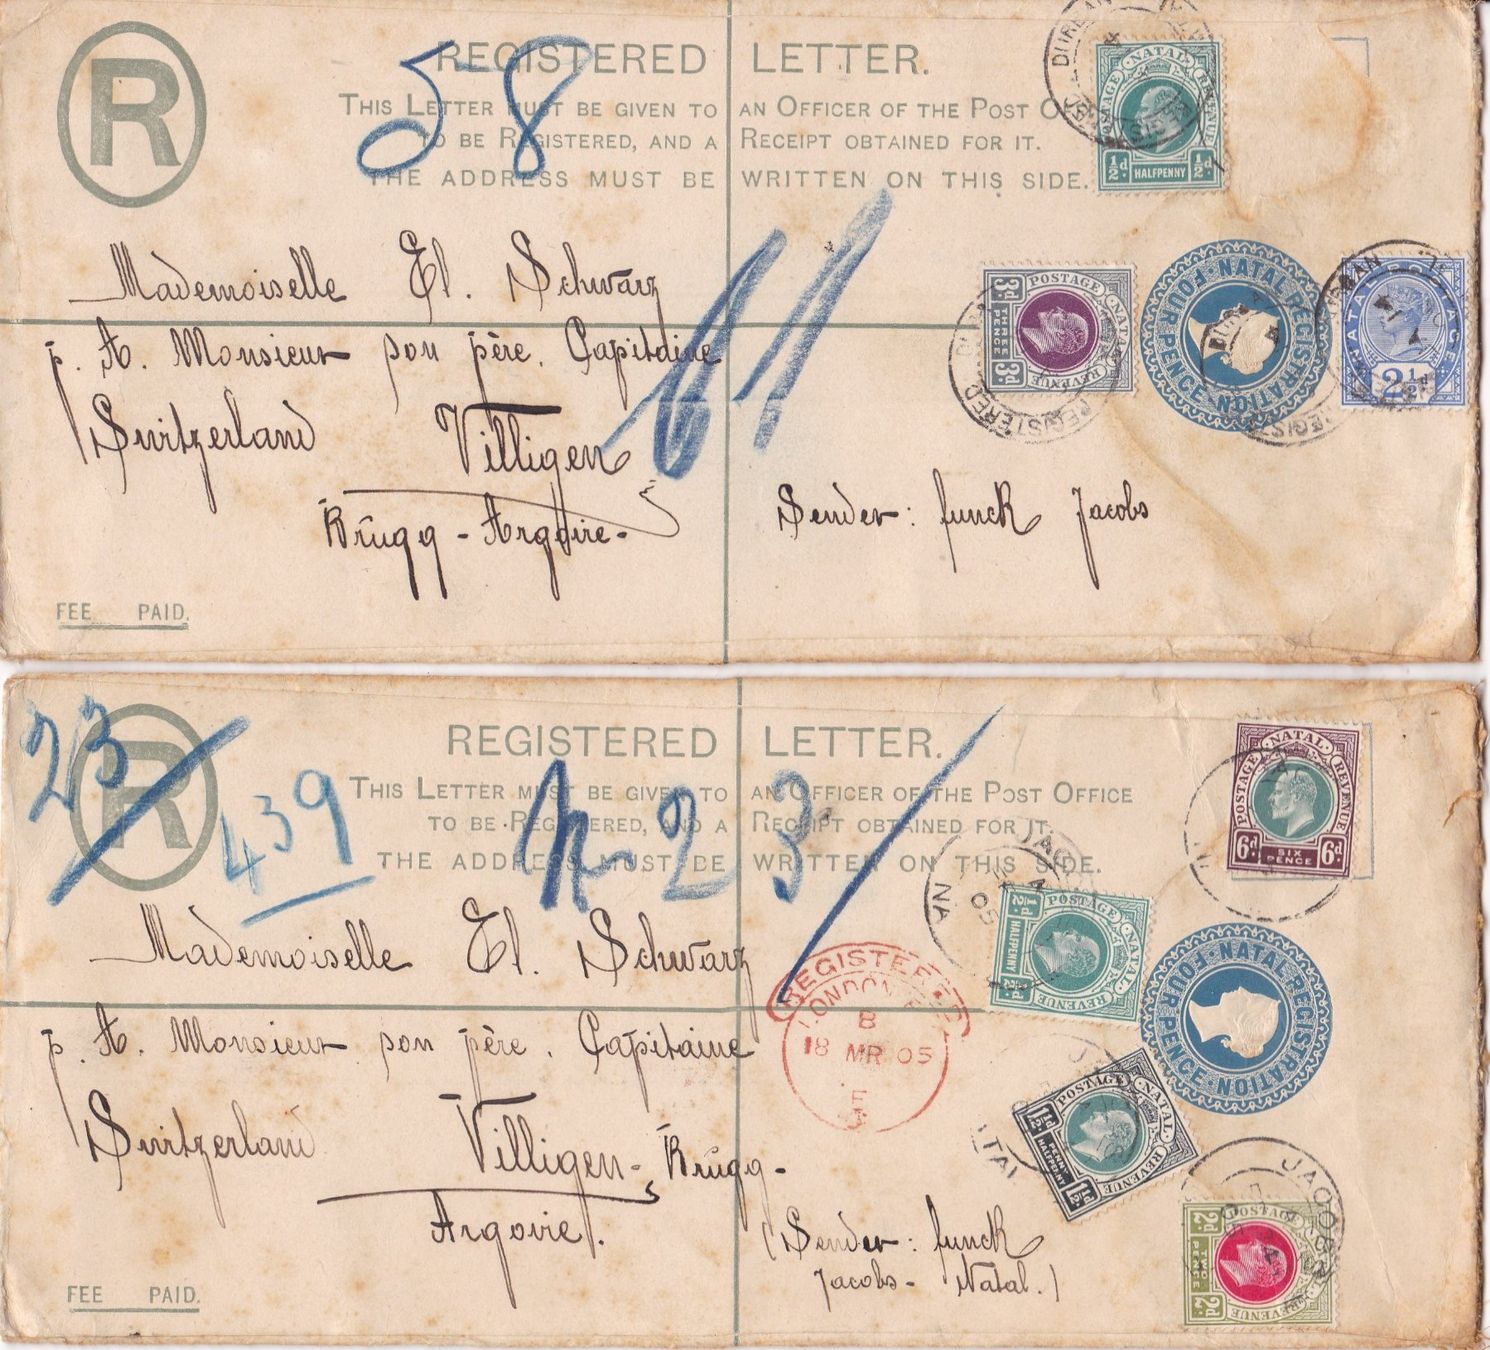 R
REGISTERED LETTER.
THIS LETTER MUST BE GIVEN TO AN OFFICER OF THE POST
TO BE REGISTERED, AND A RECEIPT OBTAINED FOR IT.
THE ADDRESS MUST BE WRITTEN ON THIS SIDE.
58
DURBAN
POSTAGE NATAL REVENUE
½d HALFPENNY ½d
Mademoiselle El. Schwarz
p. A. Monsieur son père. Capitaine
Switzerland Villigen
Brugg - Argovie.
Sender: funck Jacobs
POSTAGE NATAL REVENUE
3d THREE PENCE 3d
REGISTERED
NATAL REGISTRATION FOUR PENCE
DURBAN
NATAL POSTAGE
2½d
FEE PAID.
R
23
439
REGISTERED LETTER.
THIS LETTER MUST BE GIVEN TO AN OFFICER OF THE POST OFFICE
TO BE REGISTERED, AND A RECEIPT OBTAINED FOR IT.
THE ADDRESS MUST BE WRITTEN ON THIS SIDE.
23
POSTAGE NATAL REVENUE
6d SIX PENCE 6d
Mademoiselle El. Schwarz
p. A. Monsieur son père. Capitaine
Switzerland Villigen - Brugg -
Argovie.
(Sender: funck
Jacobs - Natal.)
REGISTERED
LONDON
B
18 MR 05
POSTAGE NATAL REVENUE
½d HALFPENNY ½d
NATAL REGISTRATION FOUR PENCE
POSTAGE NATAL REVENUE
1½d PENNY HALFPENNY 1½d
JACOBS
POSTAGE NATAL REVENUE
2d TWO PENCE 2d
FEE PAID.